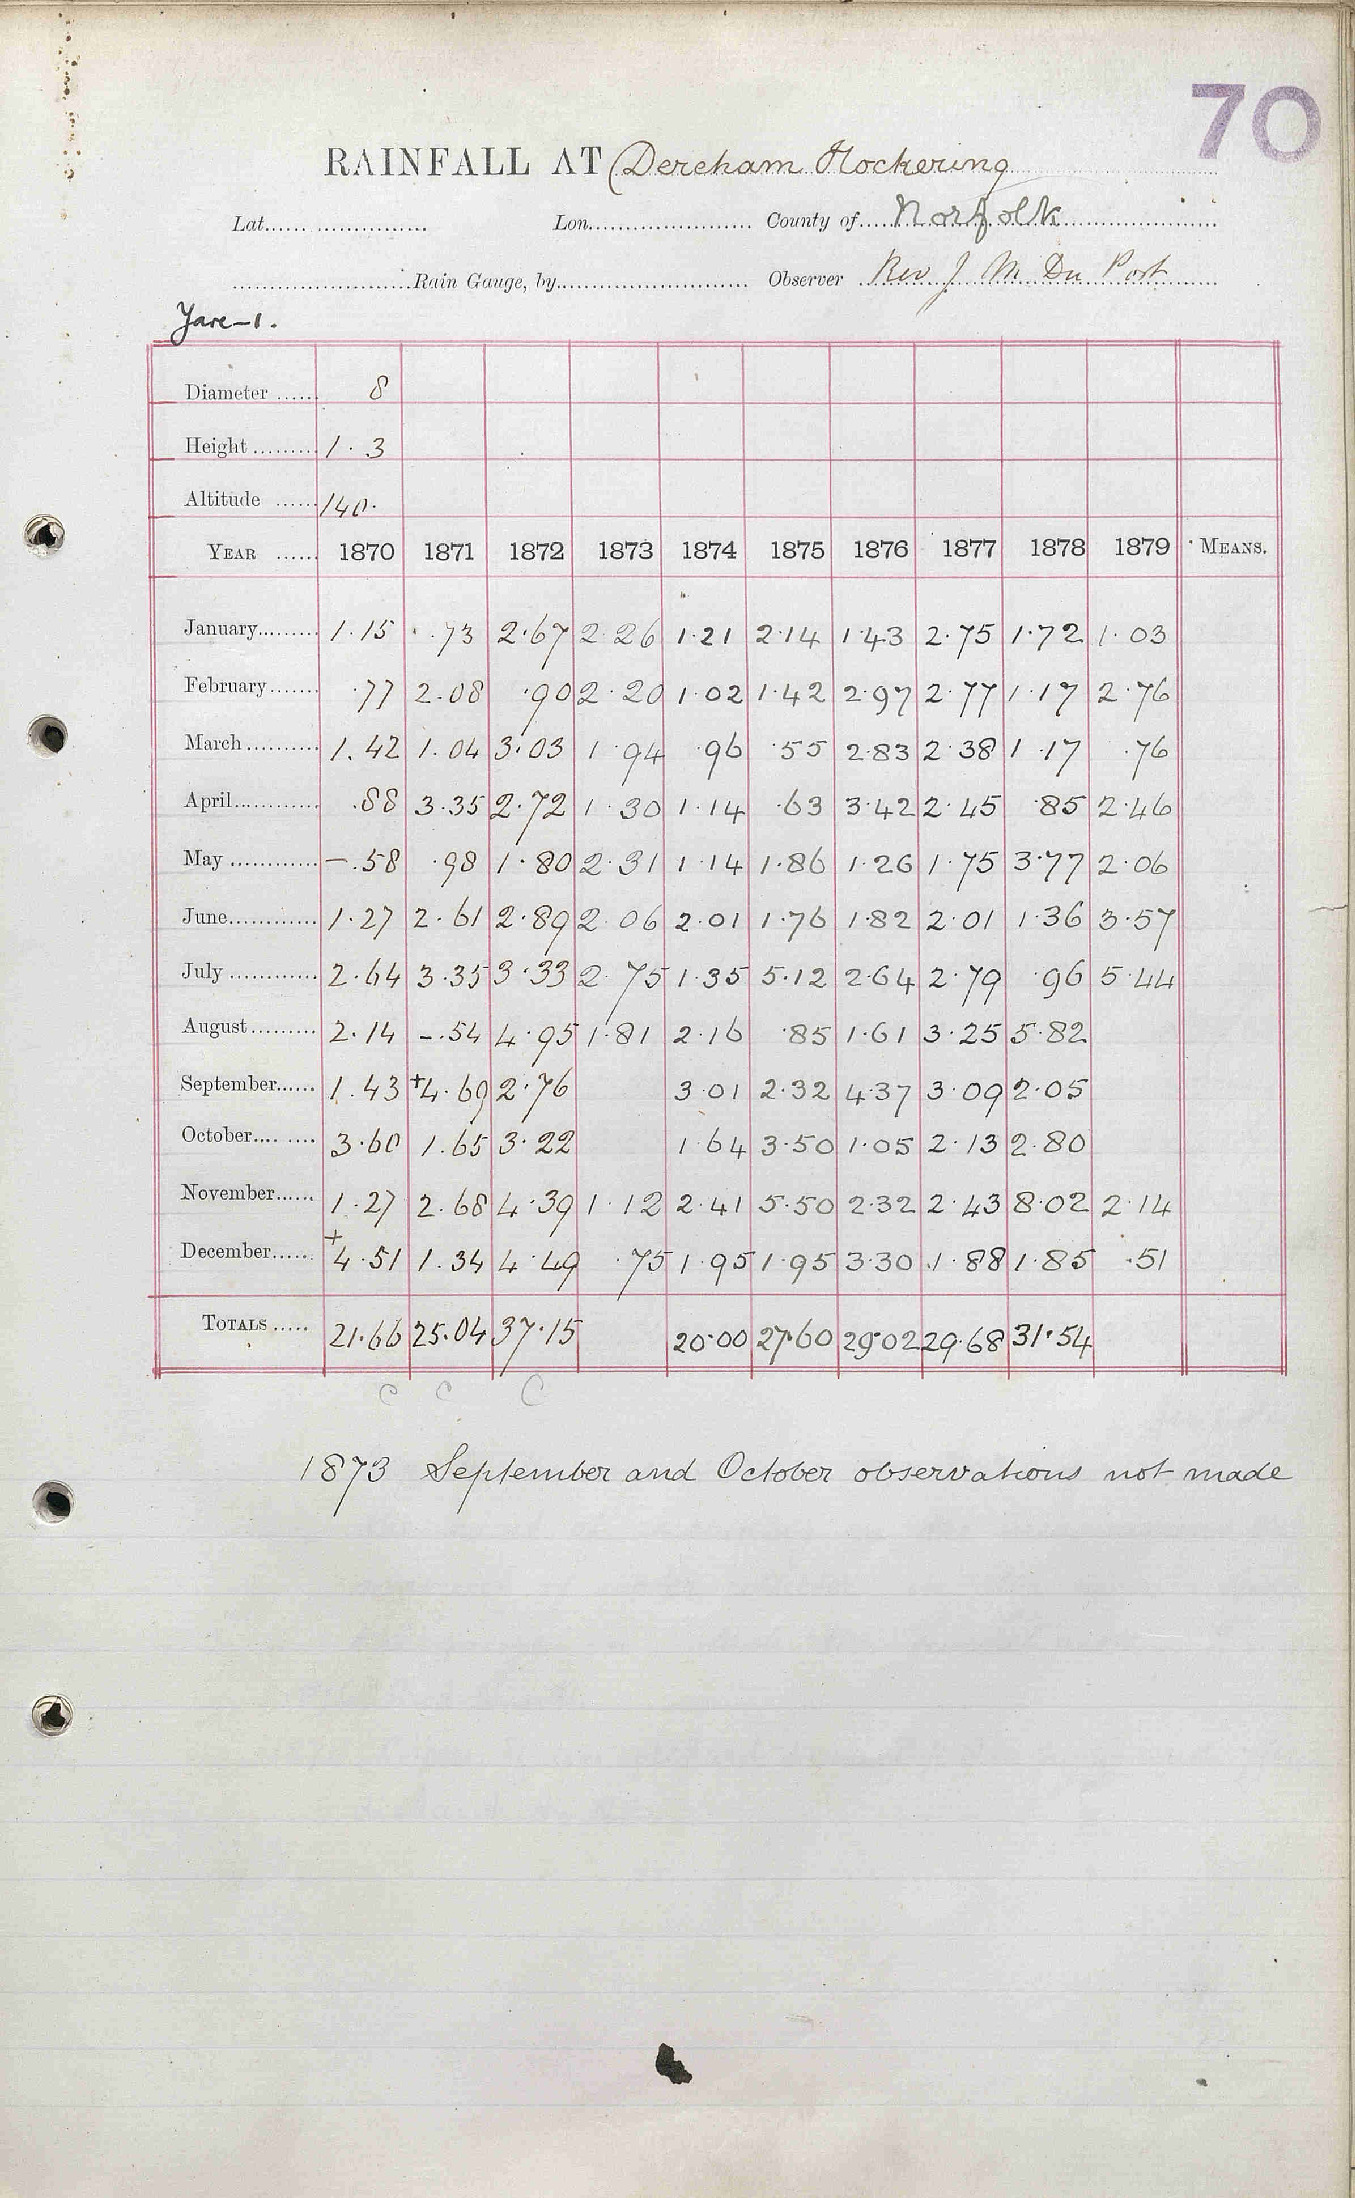 70
RAINFALL AT (Dereham Hockering
Lat...... ................ Lon....................... County of.....Norfolk
.........................Rain Gauge, by........................... Observer Rev J M Du Port
Yare-1.
Diameter ...... 8
Height ......... 1.3
Altitude ...... 140.
YEAR ...... 1870 1871 1872 1873 1874 1875 1876 1877 1878 1879 MEANS.
January......... 1.15 .73 2.67 2.26 1.21 2.14 1.43 2.75 1.72 1.03
February....... .77 2.08 .90 2.20 1.02 1.42 2.97 2.77 1.17 2.76
March .......... 1.42 1.04 3.03 1.94 .96 .55 2.83 2.38 1.17 .76
April............ .88 3.35 2.72 1.30 1.14 .63 3.42 2.45 .85 2.46
May ............ -.58 .98 1.80 2.31 1.14 1.86 1.26 1.75 3.77 2.06
June............ 1.27 2.61 2.89 2.06 2.01 1.76 1.82 2.01 1.36 3.57
July ............ 2.64 3.35 3.33 2.75 1.35 5.12 2.64 2.79 .96 5.44
August......... 2.14 -.54 4.95 1.81 2.16 .85 1.61 3.25 5.82
September...... 1.43 +4.69 2.76 3.01 2.32 4.37 3.09 2.05
October.... .... 3.60 1.65 3.22 1.64 3.50 1.05 2.13 2.80
November...... 1.27 2.68 4.39 1.12 2.41 5.50 2.32 2.43 8.02 2.14
December...... +4.51 1.34 4.49 .75 1.95 1.95 3.30 1.88 1.85 .51
TOTALS ..... 21.66 25.04 37.15 20.00 27.60 29.02 29.68 31.54
C C C
1873 September and October observations not made